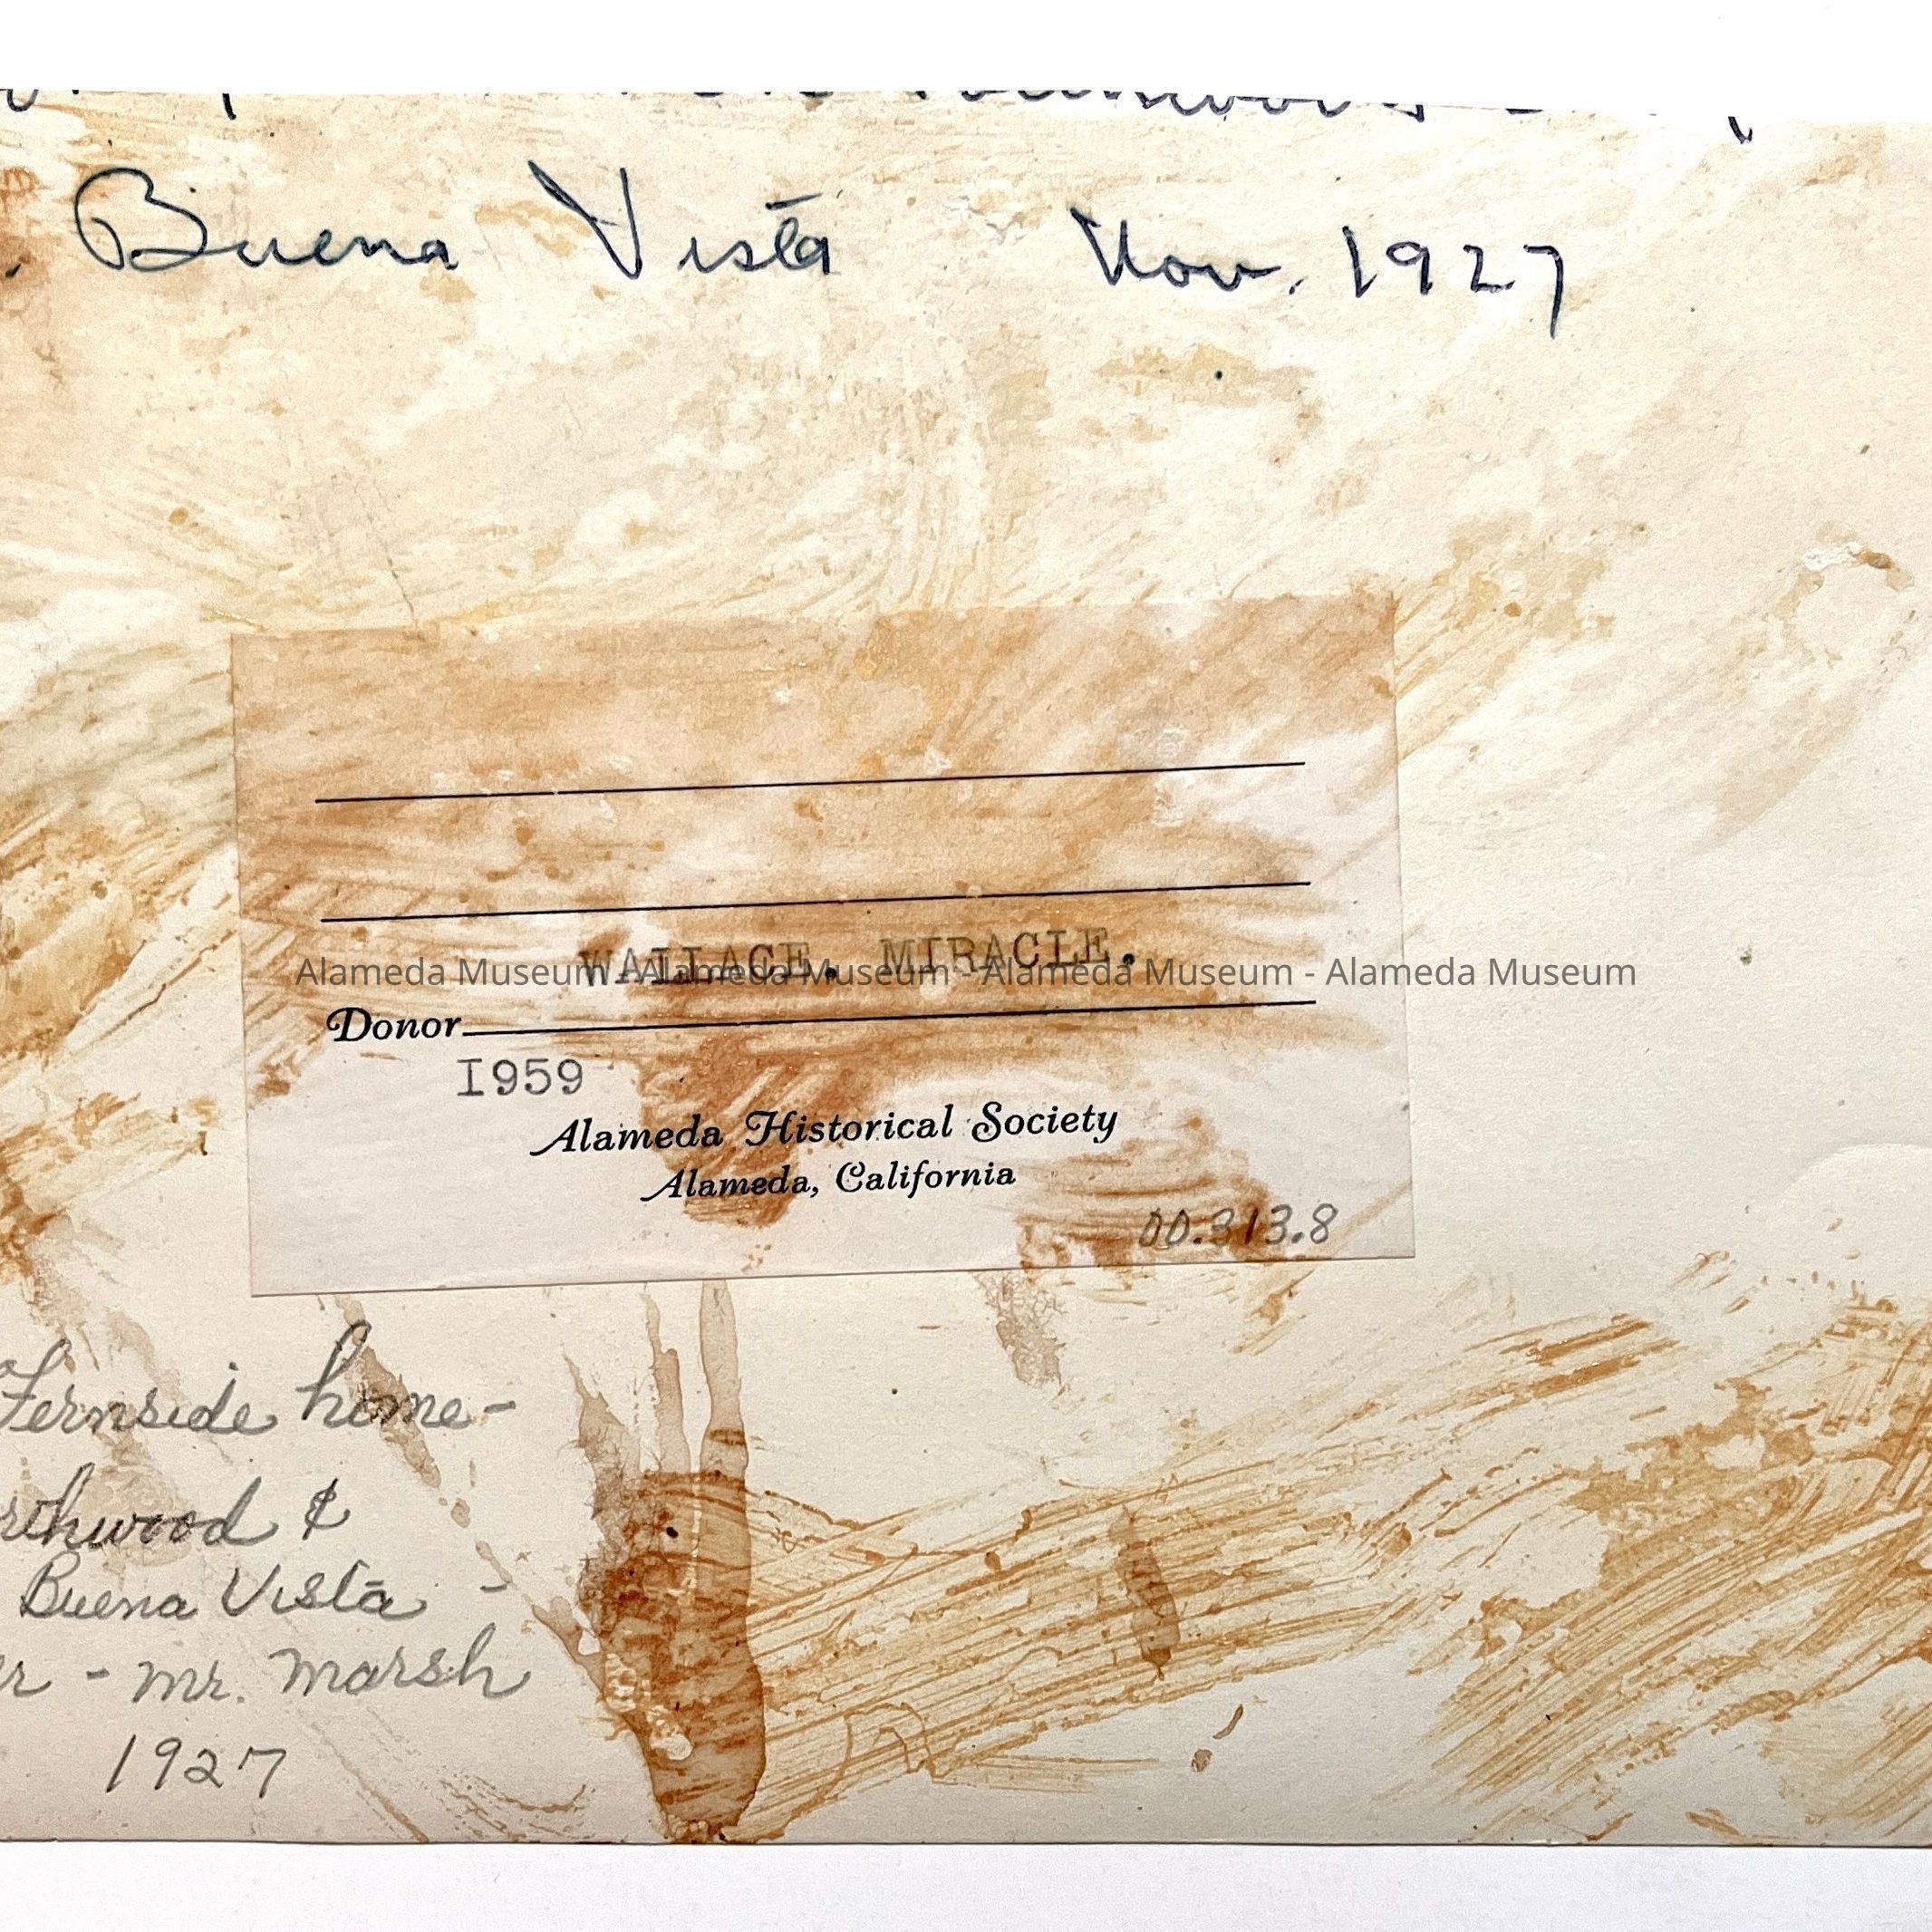 . Buena Vista Nov. 1927
WALLACE. MIRACLE.
Alameda Museum - Alameda Museum - Alameda Museum - Alameda Museum
Donor
I959
Alameda Historical Society
Alameda, California
00.313.8
Fernside home-
rthwood &
Buena Vista -
er - Mr. Marsh
1927